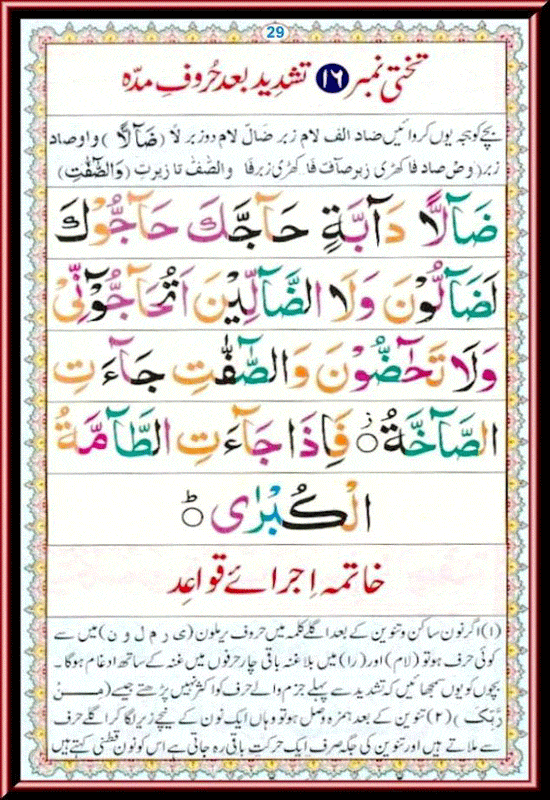 29
تختی نمبر ۱۶ تشدید بعد حُروفِ مدّہ
بچے کو ہجے یوں کروائیں ضاد الف لام زبر ضَالّ لام دو زبر لاً (ضَآلًّا) واو صاد
زبر (وَصْ صاد فا کھڑی زبر صآفّ فَا کھڑی زبر فَا والصّٰفّٰ تا زیر تِ (وَالصّٰٓفّٰتِ)
ضَآلًّا دَآبَّةٍ حَآجَّكَ حَآجُّوْكَ
لَضَآلُّوْنَ وَلَا الضَّآلِّيْنَ اَتُحَآجُّوْٓنِّيْ
وَلَا تَحٰٓضُّوْنَ وَالصّٰٓفّٰتِ جَآءَتِ
الصَّآخَّةُ۝ز فَاِذَا جَآءَتِ الطَّآمَّةُ
الْكُبْرٰى۝ط
خاتمہ اِجرائے قواعِد
(۱) اگر نون ساکن و تنوین کے بعد اگلے کلمہ میں حروف یرملون (ی ر م ل و ن) میں سے
کوئی حرف ہو تو (لام) اور (را) میں بلا غنہ باقی چار حرفوں میں غنہ کے ساتھ ادغام ہوگا۔
بچوں کو یوں سمجھائیں کہ تشدید سے پہلے جزم والے حرف کو اکثر نہیں پڑھتے جیسے (مِنْ
رَّبِّكَ) (۲) تنوین کے بعد ہمزہ وصل ہو تو وہاں ایک نون کے نیچے زیر لگا کر اگلے حرف
سے ملاتے ہیں اور تنوین کی جگہ صرف ایک حرکت باقی رہ جاتی ہے اس کو نون قطنی کہتے ہیں